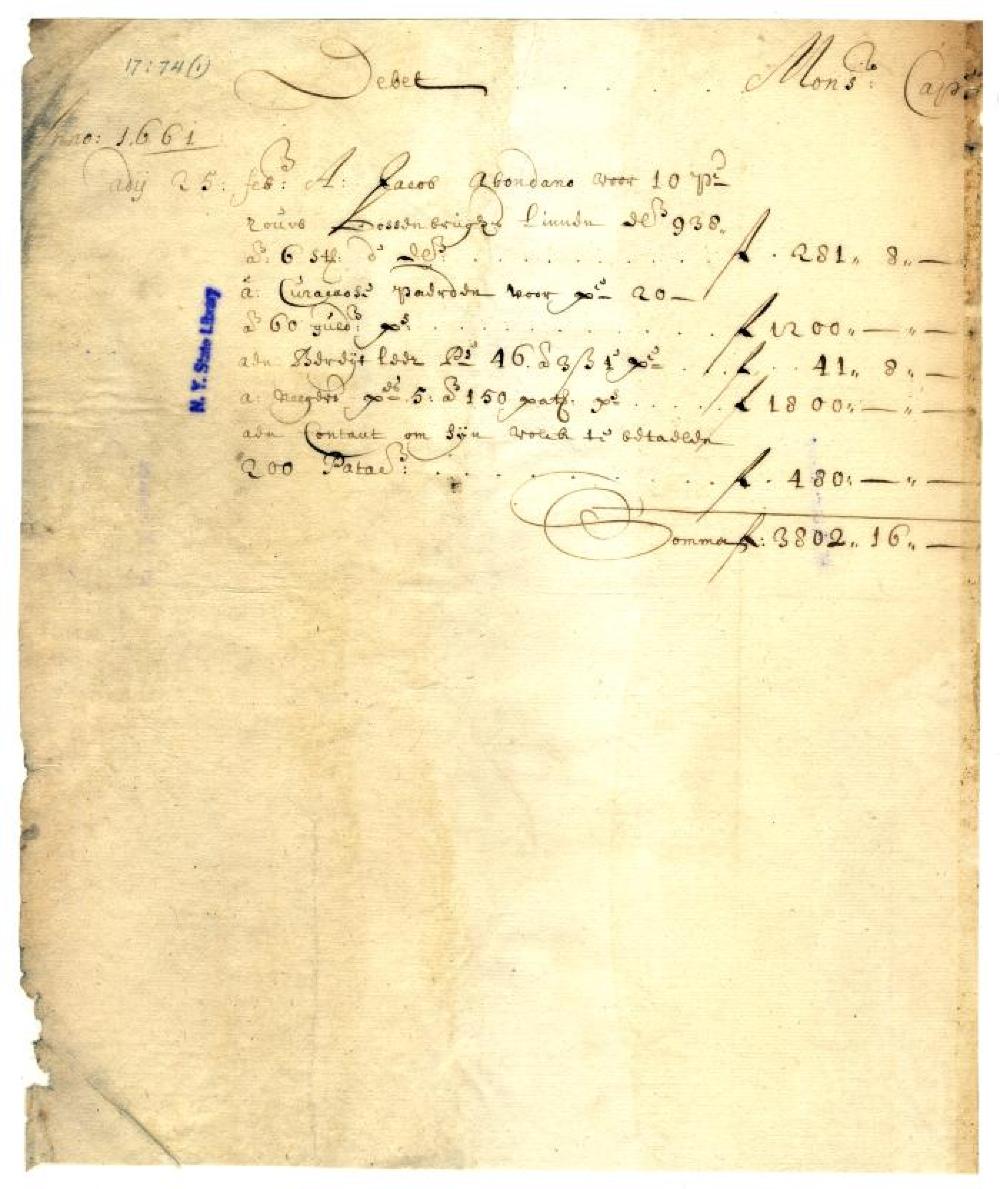 17:74(1)
Debet . . . . . . Mons:r Cap:
Anno: 1661
adij 25: feb: A: Jacob Abondano voor 10 ps
rouw Hossenbrughs Linnen del 938„
a: 6 stl: d' del: . . . . . . . . f . 281„ 8„ —
a: Curacaose Paerden voor ps 20 —
a 60 guld: ps . . . . . . . . f 1200„ — „ —
aen Bereijt leer Ps 46. a 3/31 ps . . f . . 41„ 8„ —
a: Neegers ps 5: a 150 pat: ps . . . . f 1800„ — „ —
aen Contant om sijn volck te betaelen
200 Patac: . . . . . . . . f . 480: — „ —
Somma f: 3802„ 16„ —
N. Y. State Library